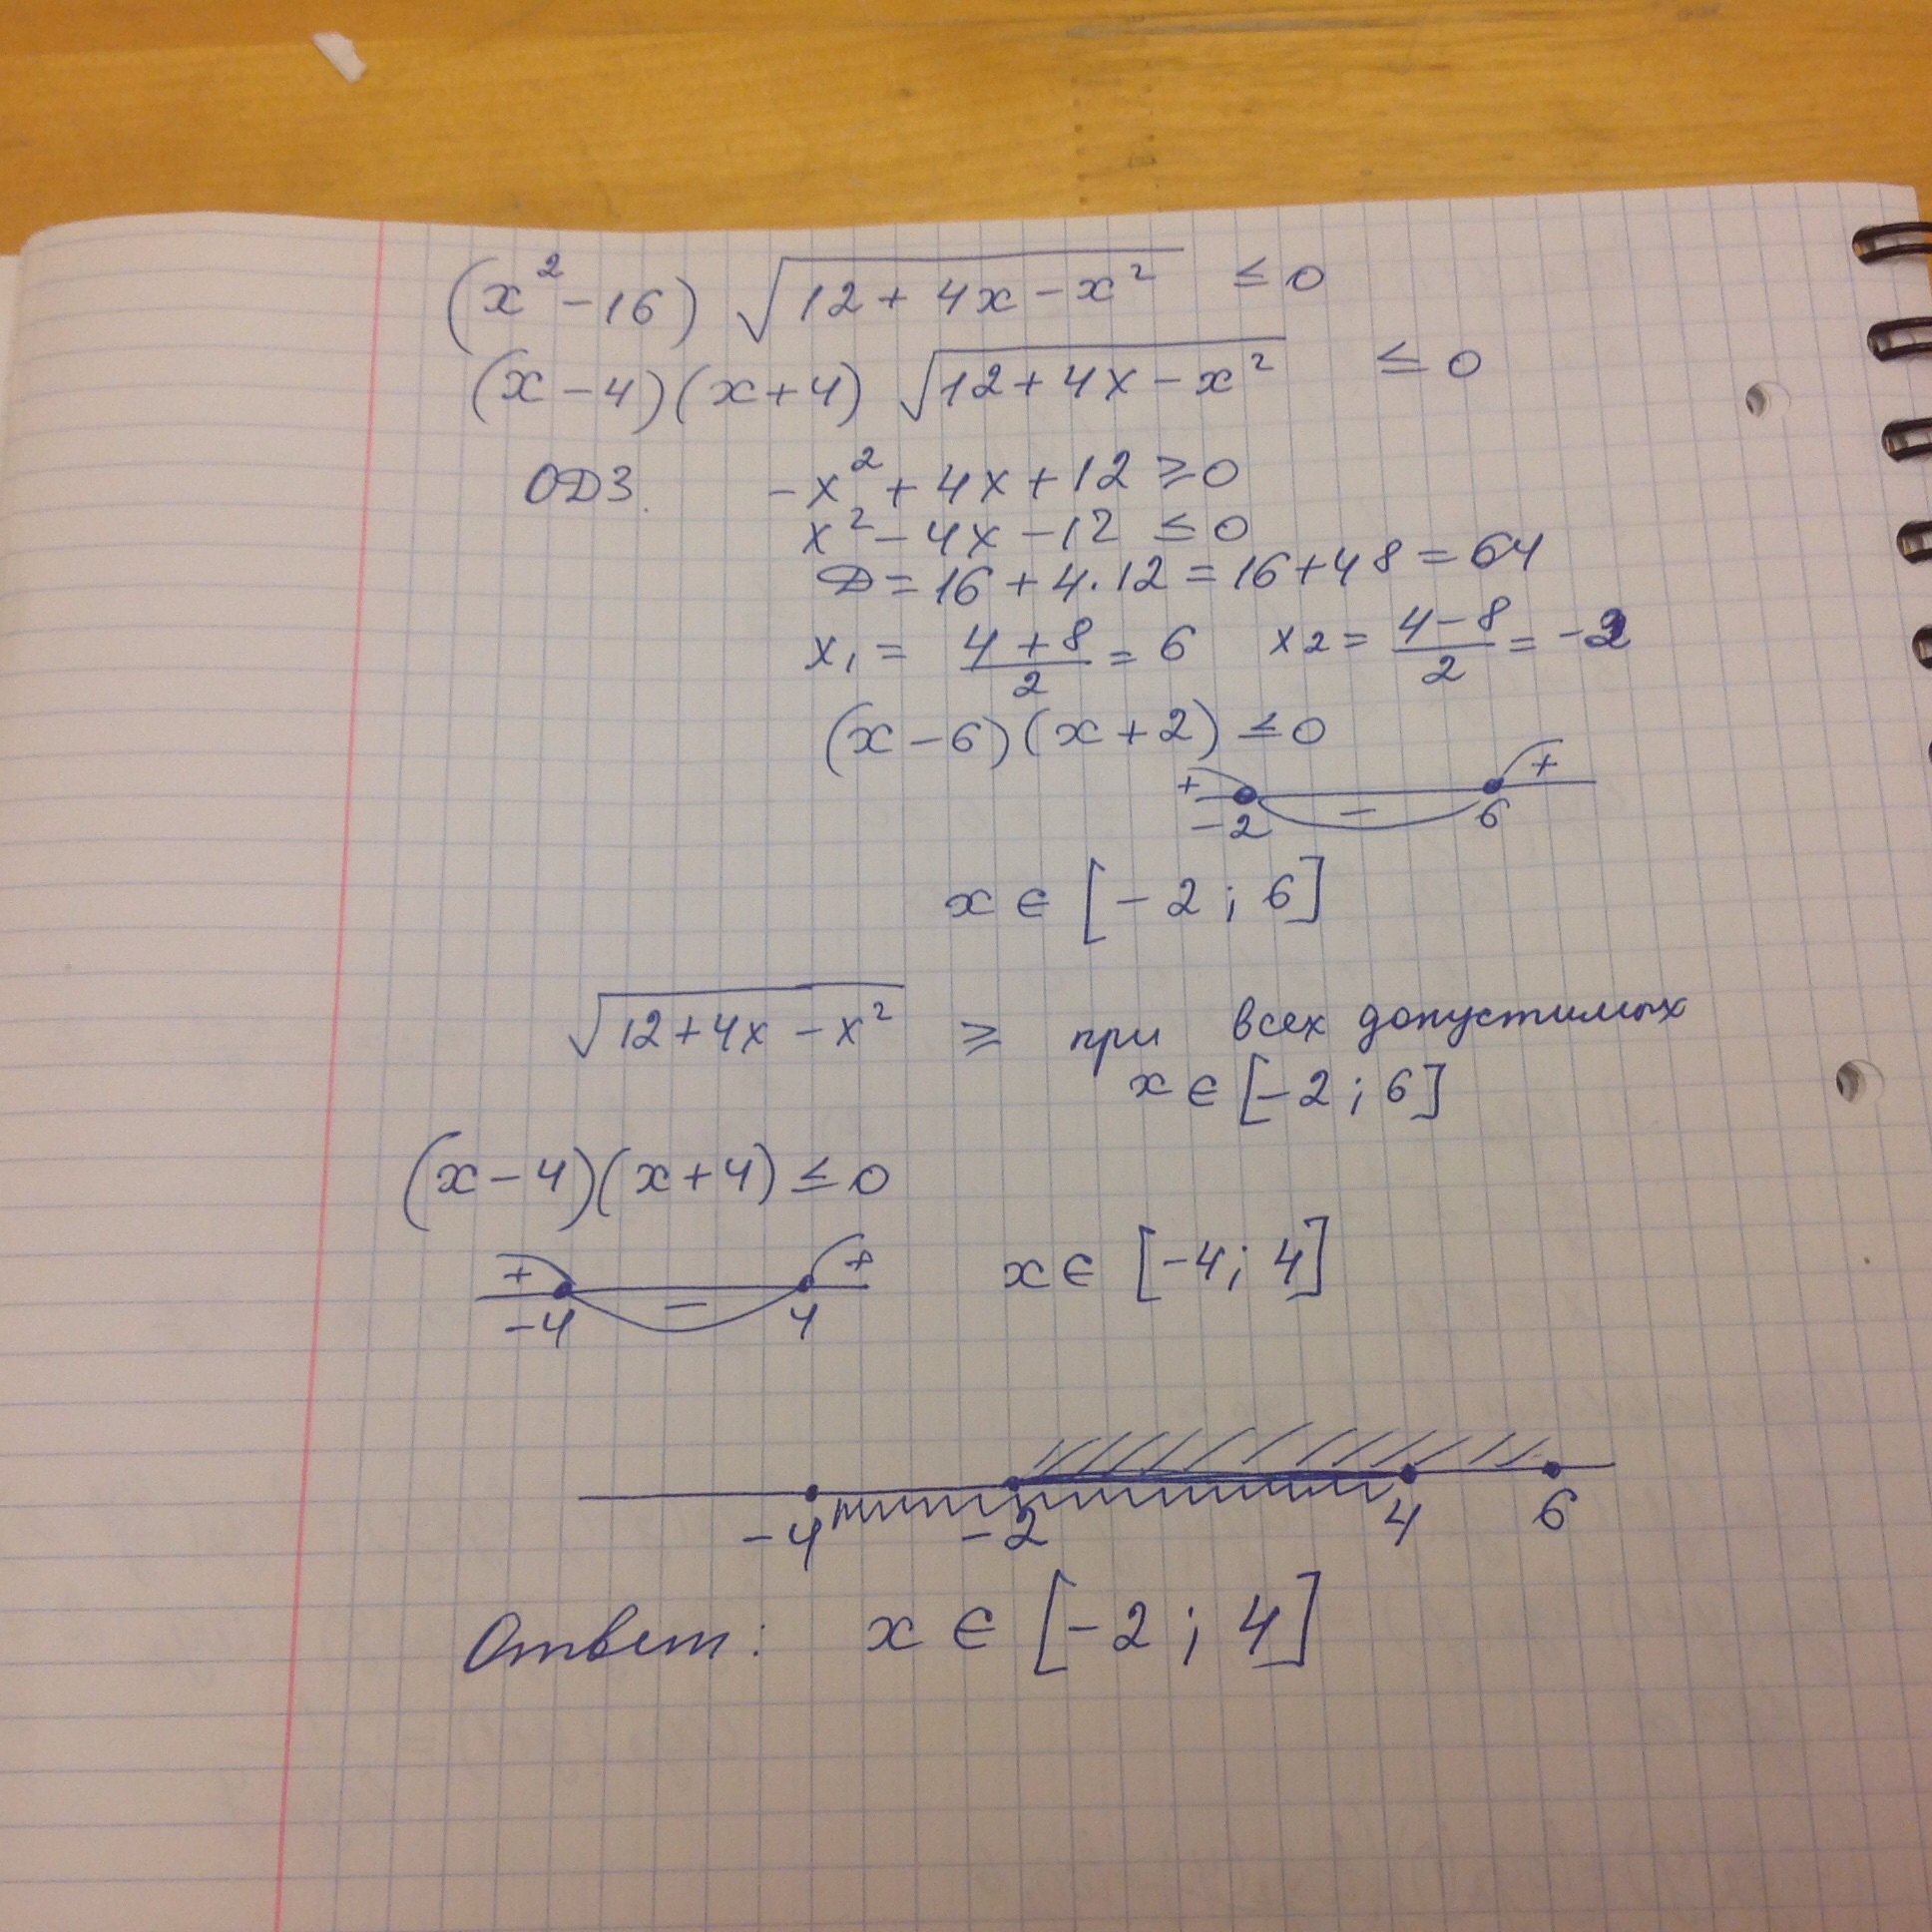 (x² - 16) √(12 + 4x - x²) ≤ 0
(x - 4)(x + 4) √(12 + 4x - x²) ≤ 0
ОДЗ. -x² + 4x + 12 ≥ 0
x² - 4x - 12 ≤ 0
D = 16 + 4·12 = 16 + 48 = 64
x₁ = (4 + 8)/2 = 6 x₂ = (4 - 8)/2 = -2
(x - 6)(x + 2) ≤ 0
+ - +
-2 6
x ∈ [-2; 6]
√(12 + 4x - x²) ≥ при всех допустимых
x ∈ [-2; 6]
(x - 4)(x + 4) ≤ 0
+ - +
-4 4
x ∈ [-4; 4]
-4 -2 4 6
Ответ: x ∈ [-2; 4]